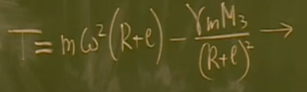 T = mω²(R+ℓ) - γmM₃/(R+ℓ)² →